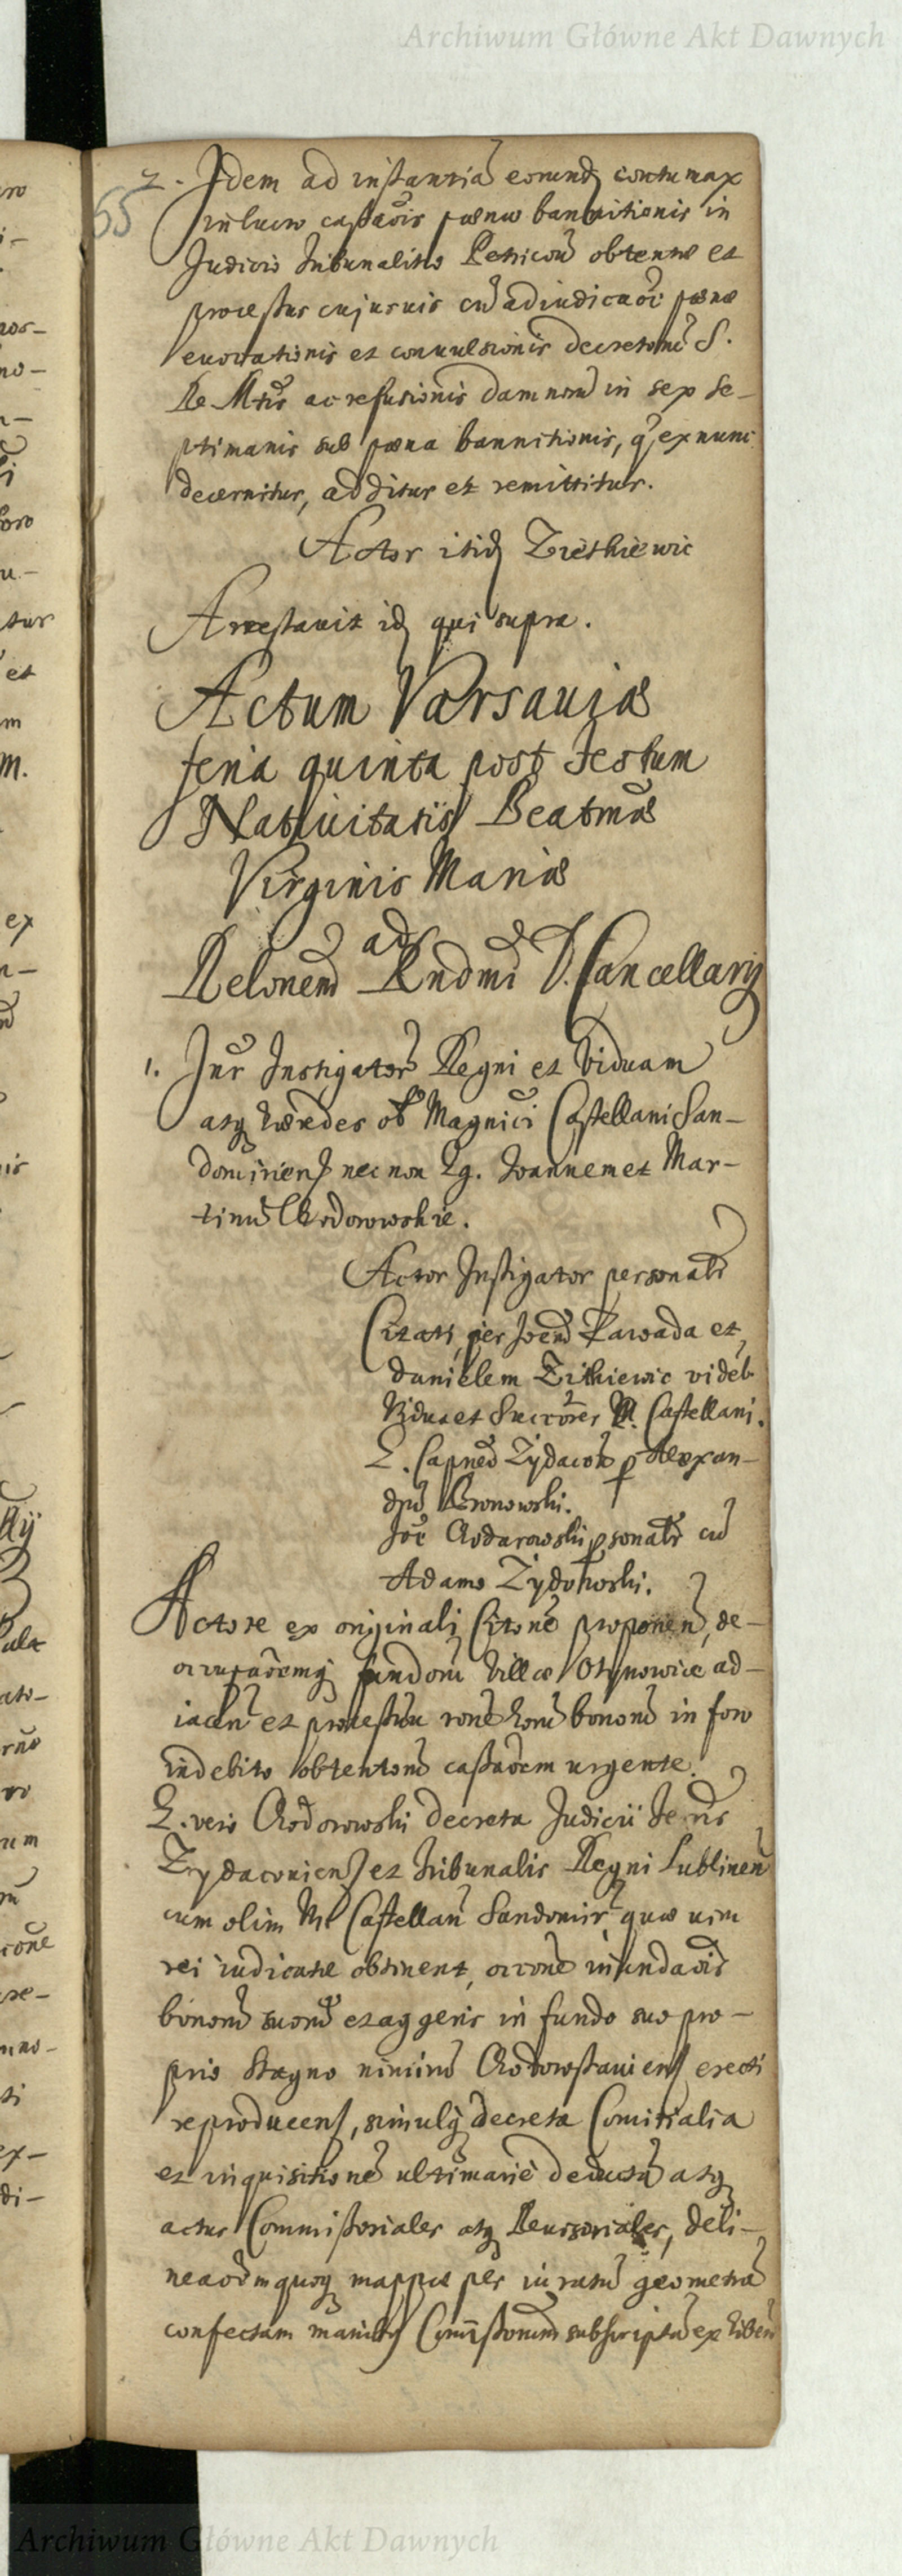 Archiwum Główne Akt Dawnych
55
2. Idem ad instantiã eorundq contumax
in lucro cassãois pænæ bannitionis in
Judicio Tribunalitio Petricoũ obtentæ et
processus cujusuis cũ adiudicaõe pænæ
euocationis et conuulsionis decretorũ S.
Re Mtis ac refusionis damnorũ in sex se-
ptimanis sub pæna bannitionis, q̃ ex nunc
decernitur, additur et remittitur.
Actor itidq Zietkiewic
Arrestauit idq qui supra.
Actum Varsauiæ
feria quinta post festum
Natiuitatis Beatmæ
Virginis Mariæ
ad
Relonem Rndmi D. Cancellarij
1. Inr Instigatorẽ Regni et Viduam
atq hæredes ol Magnici Castellani San-
domirien nec non Gg. Joannem et Mar-
tinũ Chodorowskie.
Actor Instigator personalr
Citati per Joem Zawada et
Danielem Zitkiewic videlt
Vidua et Succores M. Castellani.
G. Capneũ Zydacoũ p Alexan-
drũ Bronowski.
Joẽ Chodorowski psonalr cũ
Adamo Zydowski.
Actore ex originali Citonẽ proponeñ, de-
occupaõemq fundorũ Villæ Otynowice ad-
iaceñ et processũu ronẽ horũ bonorũ in foro
indebito obtentorũ cassaõem urgente.
G. vero Chodorowski decreta Judicii Terris
Zydaconien et Tribunalis Regni Lublineñ
cum olim M. Castellañ Sandomir quæ vim
rei iudicatæ obtinent, occonẽ inundaõis
bonorũ suorũ et aggeris in fundo suo pro-
prio Stagno nimirũ Chodorostauien erecti
reproducen, simulq decreta Comitialia
et inquisitionẽ ultimariè deductã atq
actus Commissoriales atq Reuisoriales, deli-
neaõmquoq mappæ per iuratũ geometrã
confectam manibq Commissorum subscriptã exhibeñ